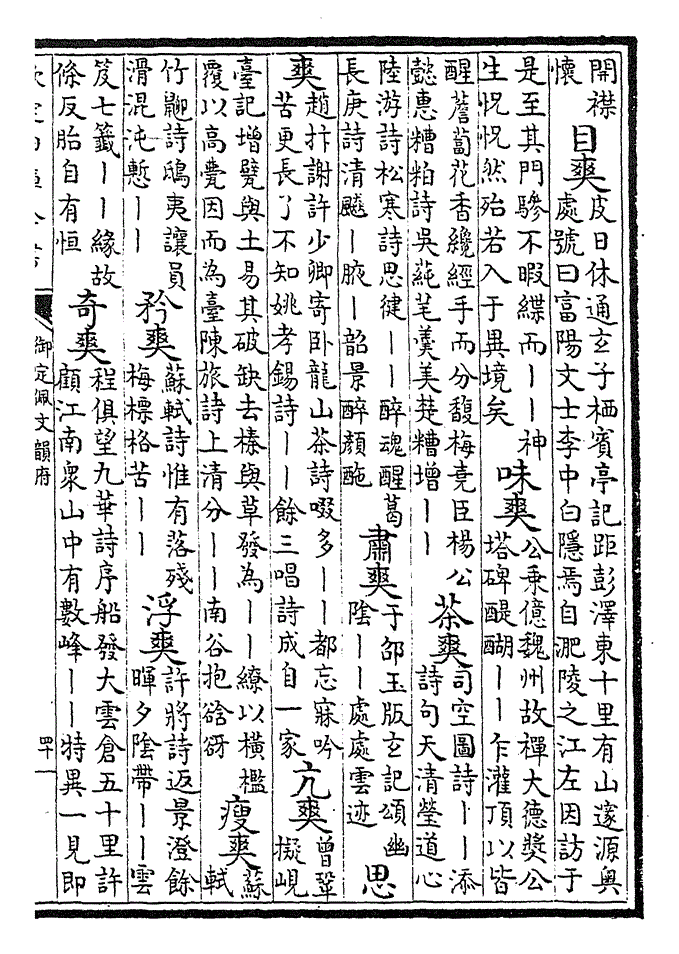 開襟
懷
目爽
皮日休通玄子栖賓亭記距彭澤東十里有山邃源奧
處號曰富陽文士李中白隱焉自淝陵之江左因訪于
是至其門驂不暇緤而丨丨神
生怳怳然殆若入于異境矣
味爽
公乘億魏州故禪大德獎公
塔碑醍醐丨丨乍灌頂以皆
醒薝蔔花香纔經手而分馥梅堯臣楊公
懿惠糟粕詩吳蒓芼羹美楚糟增丨丨
茶爽
司空圖詩丨丨添
詩句天清瑩道心
陸游詩松寒詩思健丨丨醉魂醒葛
長庚詩清飈丨腋丨韶景醉顏酡
肅爽
于邵玉版玄記頌幽
陰丨丨處處雲迹
思
爽
趙抃謝許少卿寄卧龍山茶詩啜多丨丨都忘寐吟
苦更長了不知姚孝錫詩丨丨餘三唱詩成自一家
亢爽
曾鞏
擬峴
臺記增甓與土易其破缺去榛與草發為丨丨繚以橫檻
覆以高甍因而為臺陳旅詩上清分丨丨南谷抱谽谺
瘦爽
蘇
軾
竹䶉詩鴟夷讓員
滑混沌慙丨丨
矜爽
蘇軾詩惟有落殘
梅標格苦丨丨
浮爽
許將詩返景澄餘
暉夕陰帶丨丨雲
笈七籤丨丨緣故
條反胎自有恒
奇爽
程俱望九華詩序船發大雲倉五十里許
顧江南衆山中有數峰丨丨特異一見即
欽定四庫全書
御定佩文韻府
四十一